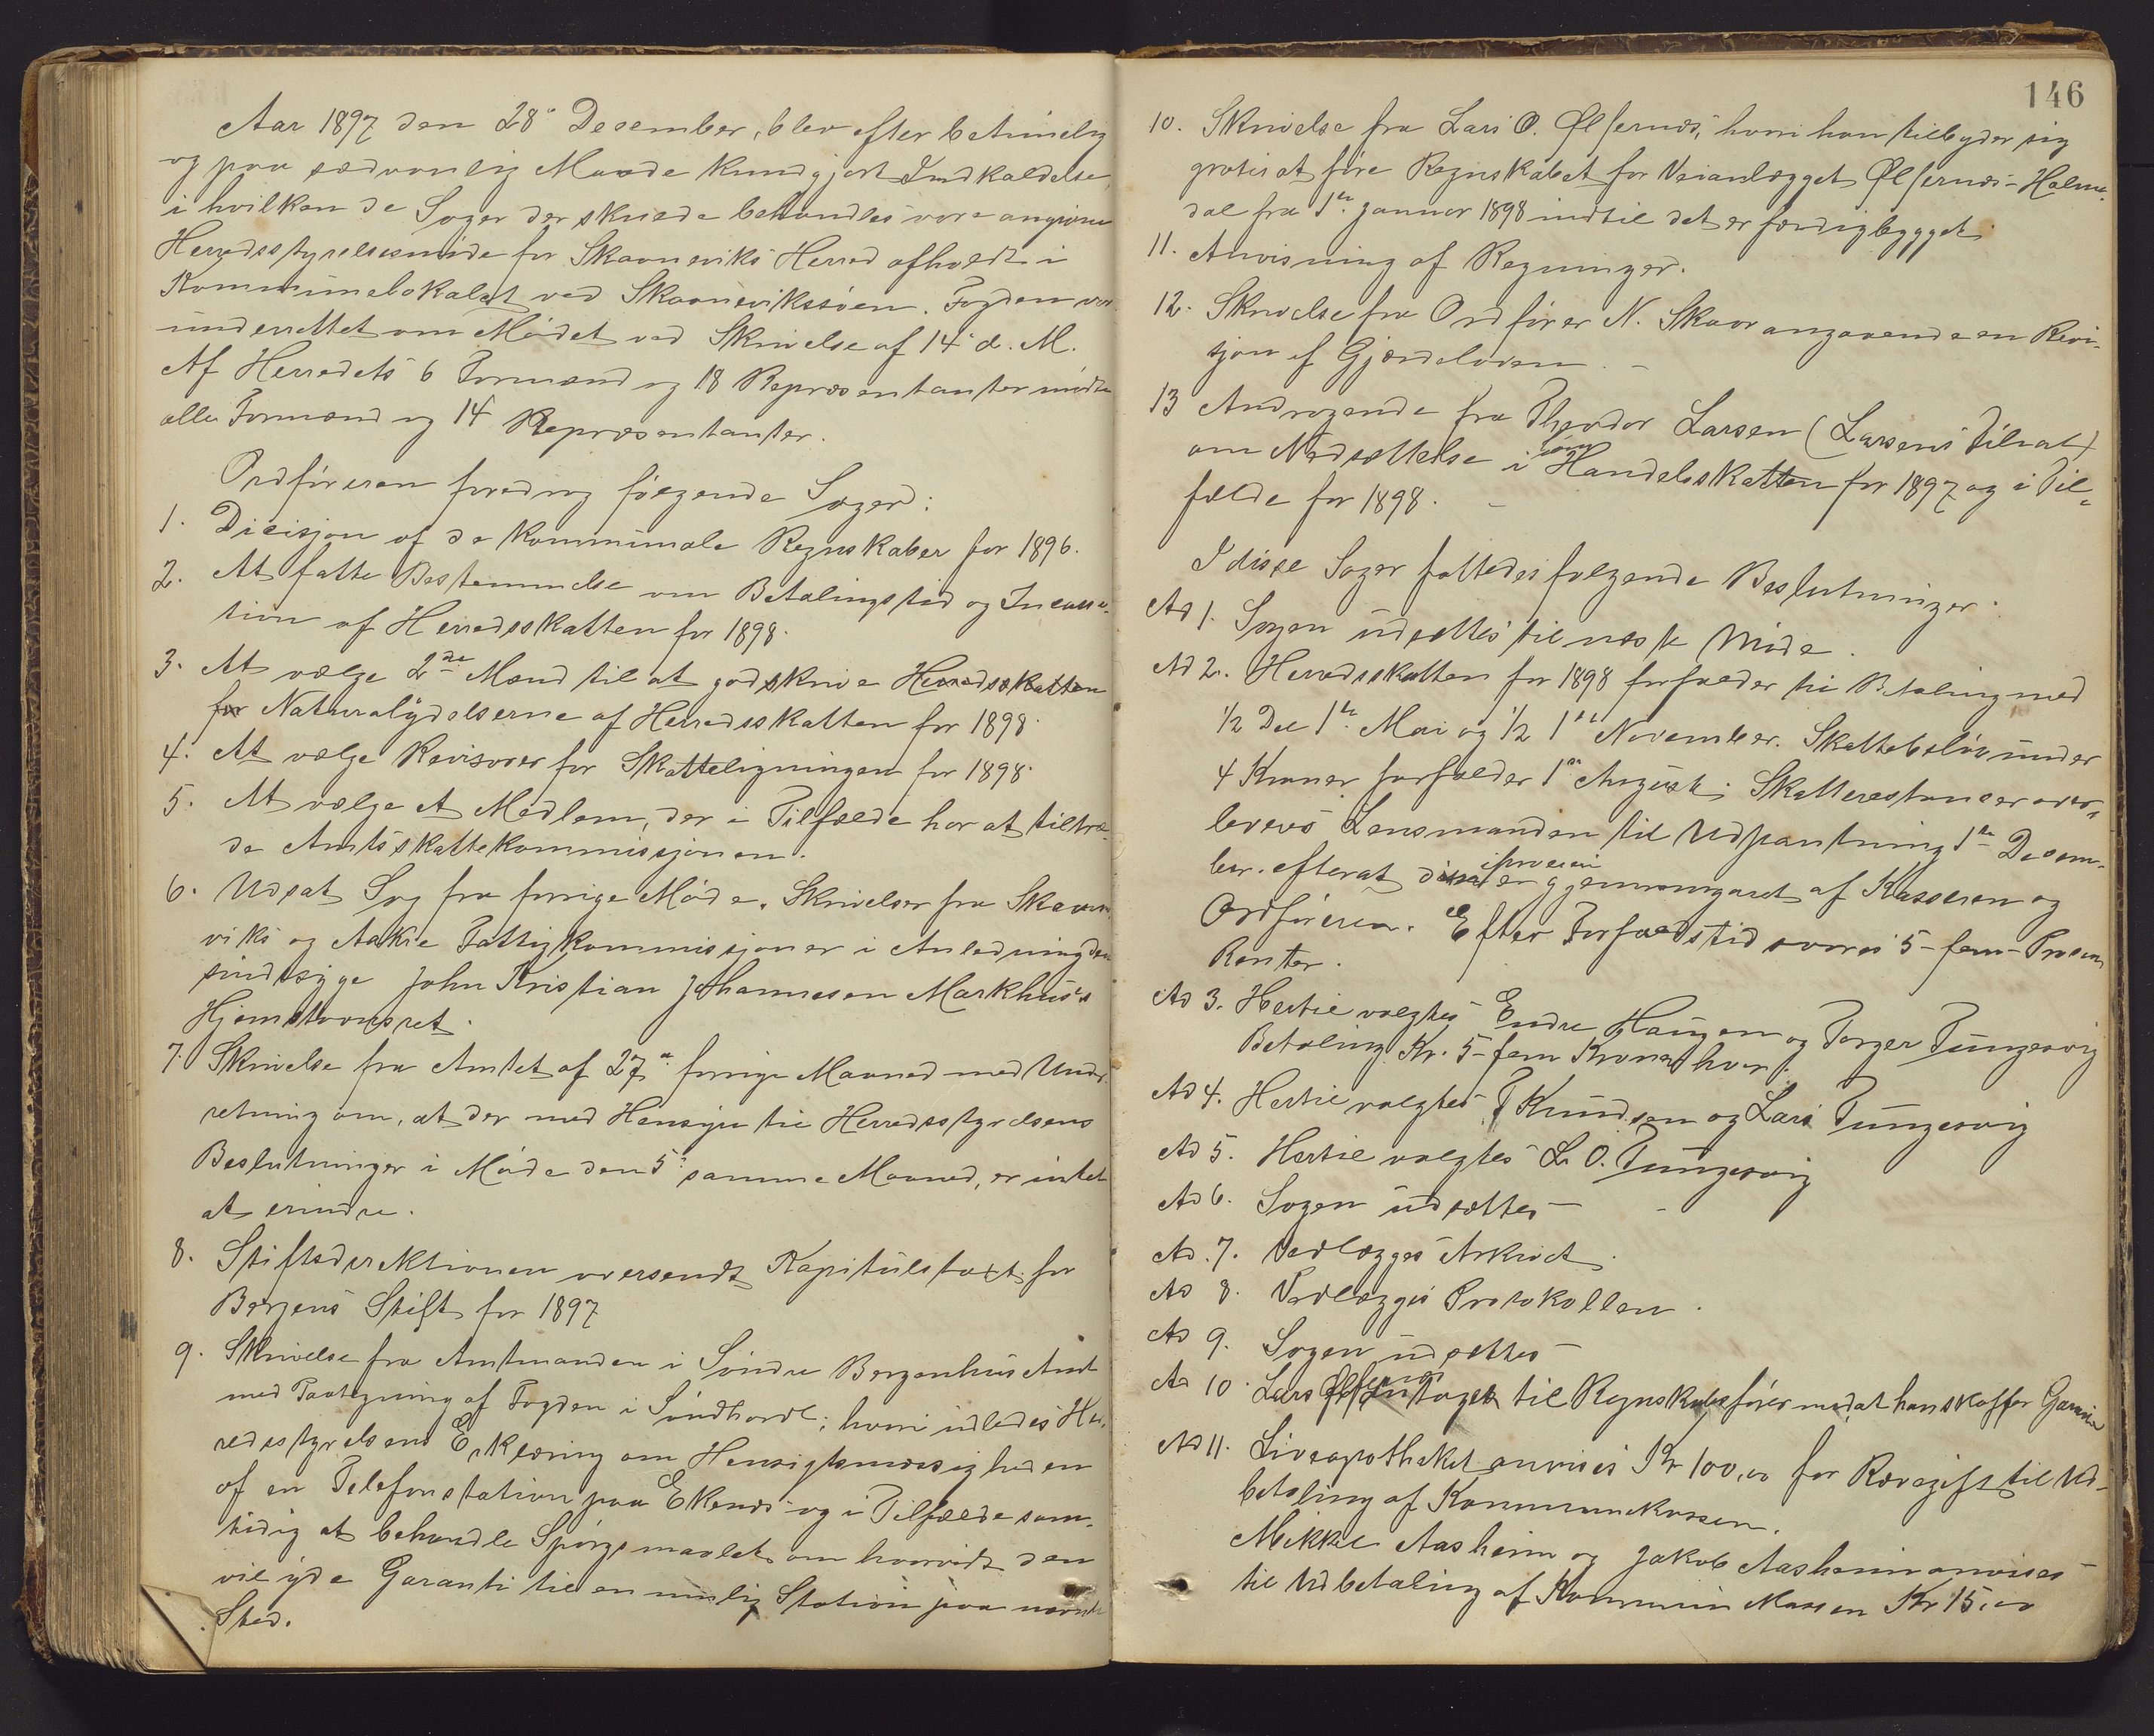 Aar 1897 den 28de December, blev efter betimelig
og paa sædvanlig Maade kundgjort Indkaldelse,
i hvilken de Sager der skulde behandles vare angivne
Herredsstyrelsesmøde for Skaaneviks Herred afholdt i
Kommunelokalet ved Skaanevikssøen. Fogden var
underrettet om Mødet ved Skrivelse af 14de d. M.
Af Herredets 6 Formænd og 18 Repræsentanter mødte
alle Formænd og 14 Repræsentanter.
Ordføreren foredrog følgende Sager:
1. Dicisjon af de kommunale Regnskaber for 1896.
2. At fatte Bestemmelse om Betalingstid og Incassa-
tion af Herredsskatten for 1898.
3. At vælge 2de Mænd til at godskrive Herredsskatten
for Naturalydelserne af Herredsskatten for 1898.
4. At vælge Revisorer for Skatteligningen for 1898.
5. At vælge et Medlem, der i Tilfælde har at tiltræ-
de Amtsskattekommissjonen.
6. Udsat Sag fra forrige Møde. Skrivelser fra Skaane-
viks og Aakre Fattigkommissjoner i Anledning den
sindssyge John Kristian Johannesen Markhus's
Hjemstavnsret.
7. Skrivelse fra Amtet af 27de forrige Maaned med Under-
retning om, at der med Hensyn til Herredsstyrelsens
Beslutninger i Møde den 5te samme Maaned, er intet
at erindre.
8. Stiftsdirektionen oversendt Kapitulstaxt for
Bergens Stift for 1897
9. Skrivelse fra Amtmanden i Søndre Bergenhus Amt
med Paategning af Fogden i Søndhordl.; hvori udledes Her-
redsstyrelsens Erklæring om Hensigtsmæssigheden
af en Telefonstation paa Ekenæs og i Tilfælde sam-
tidig at behandle Spørgsmaalet om hvorvidt den
vil yde Garanti til en mulig Station paa nævnte
Sted.
146
10. Skrivelse fra Lars O. Ølfernæs, hvori han tilbyder sig
gratis at føre Regnskabet for Veianlægget Ølfernæs-Holme-
dal fra 1ste Januar 1898 indtil det er færdigbygget.
11. Anvisning af Regninger.
12. Skrivelse fra Ordfører N. Skaar angaaende en Revi-
sjon af Gjærdeloven. –
13 Andragende fra Theodor Larsen (Larsens Tilsat)
om Nedsættelse i sin Handelsskatten for 1897 og i Til-
fælde for 1898. –
I disse Sager fattedes følgende Beslutninger.
Ad 1. Sagen udsættes til næste Møde.
Ad 2. Herredsskatten for 1898 forfalder til Betaling med
1/2 Del 1ste Mai og 1/2 1ste November. Skattebeløb under
4 Kroner forfalder 1ste August; Skatterestanser over-
leveres Lensmanden til Udpantning 1ste Decem-
ber. efterat disse er gjennemgaaet af Kasseren og
Ordføreren. Efter Forfaldstid svares 5-fem-Procent
Renter.
Ad 3. Hertil valgtes Endre Haugen og Torger Tungesvig
Betaling Kr. 5-fem Kroner hver.
Ad 4. Hertil valgtes T Knudsen og Lars Tungesvig
Ad 5. Hertil valgtes L. O. Tungesvig
Ad 6. Sagen udsættes –
Ad. 7. Vedlægges Arkivet.
Ad 8. Vedlægges Protokollen.
Ad 9. Sagen udsættes –
Ad 10. Lars Ølfernæs antaget til Regnskabsfører med at han skaffer Garanti
Ad 11. Løveapotheket anvises Kr 100,00 for Rævegift til Ud-
betaling af Kommunekassen.
Mikkel Aasheim og Jakob Aasheim anvises
til Udbetaling af Kommunekassen Kr 15,00